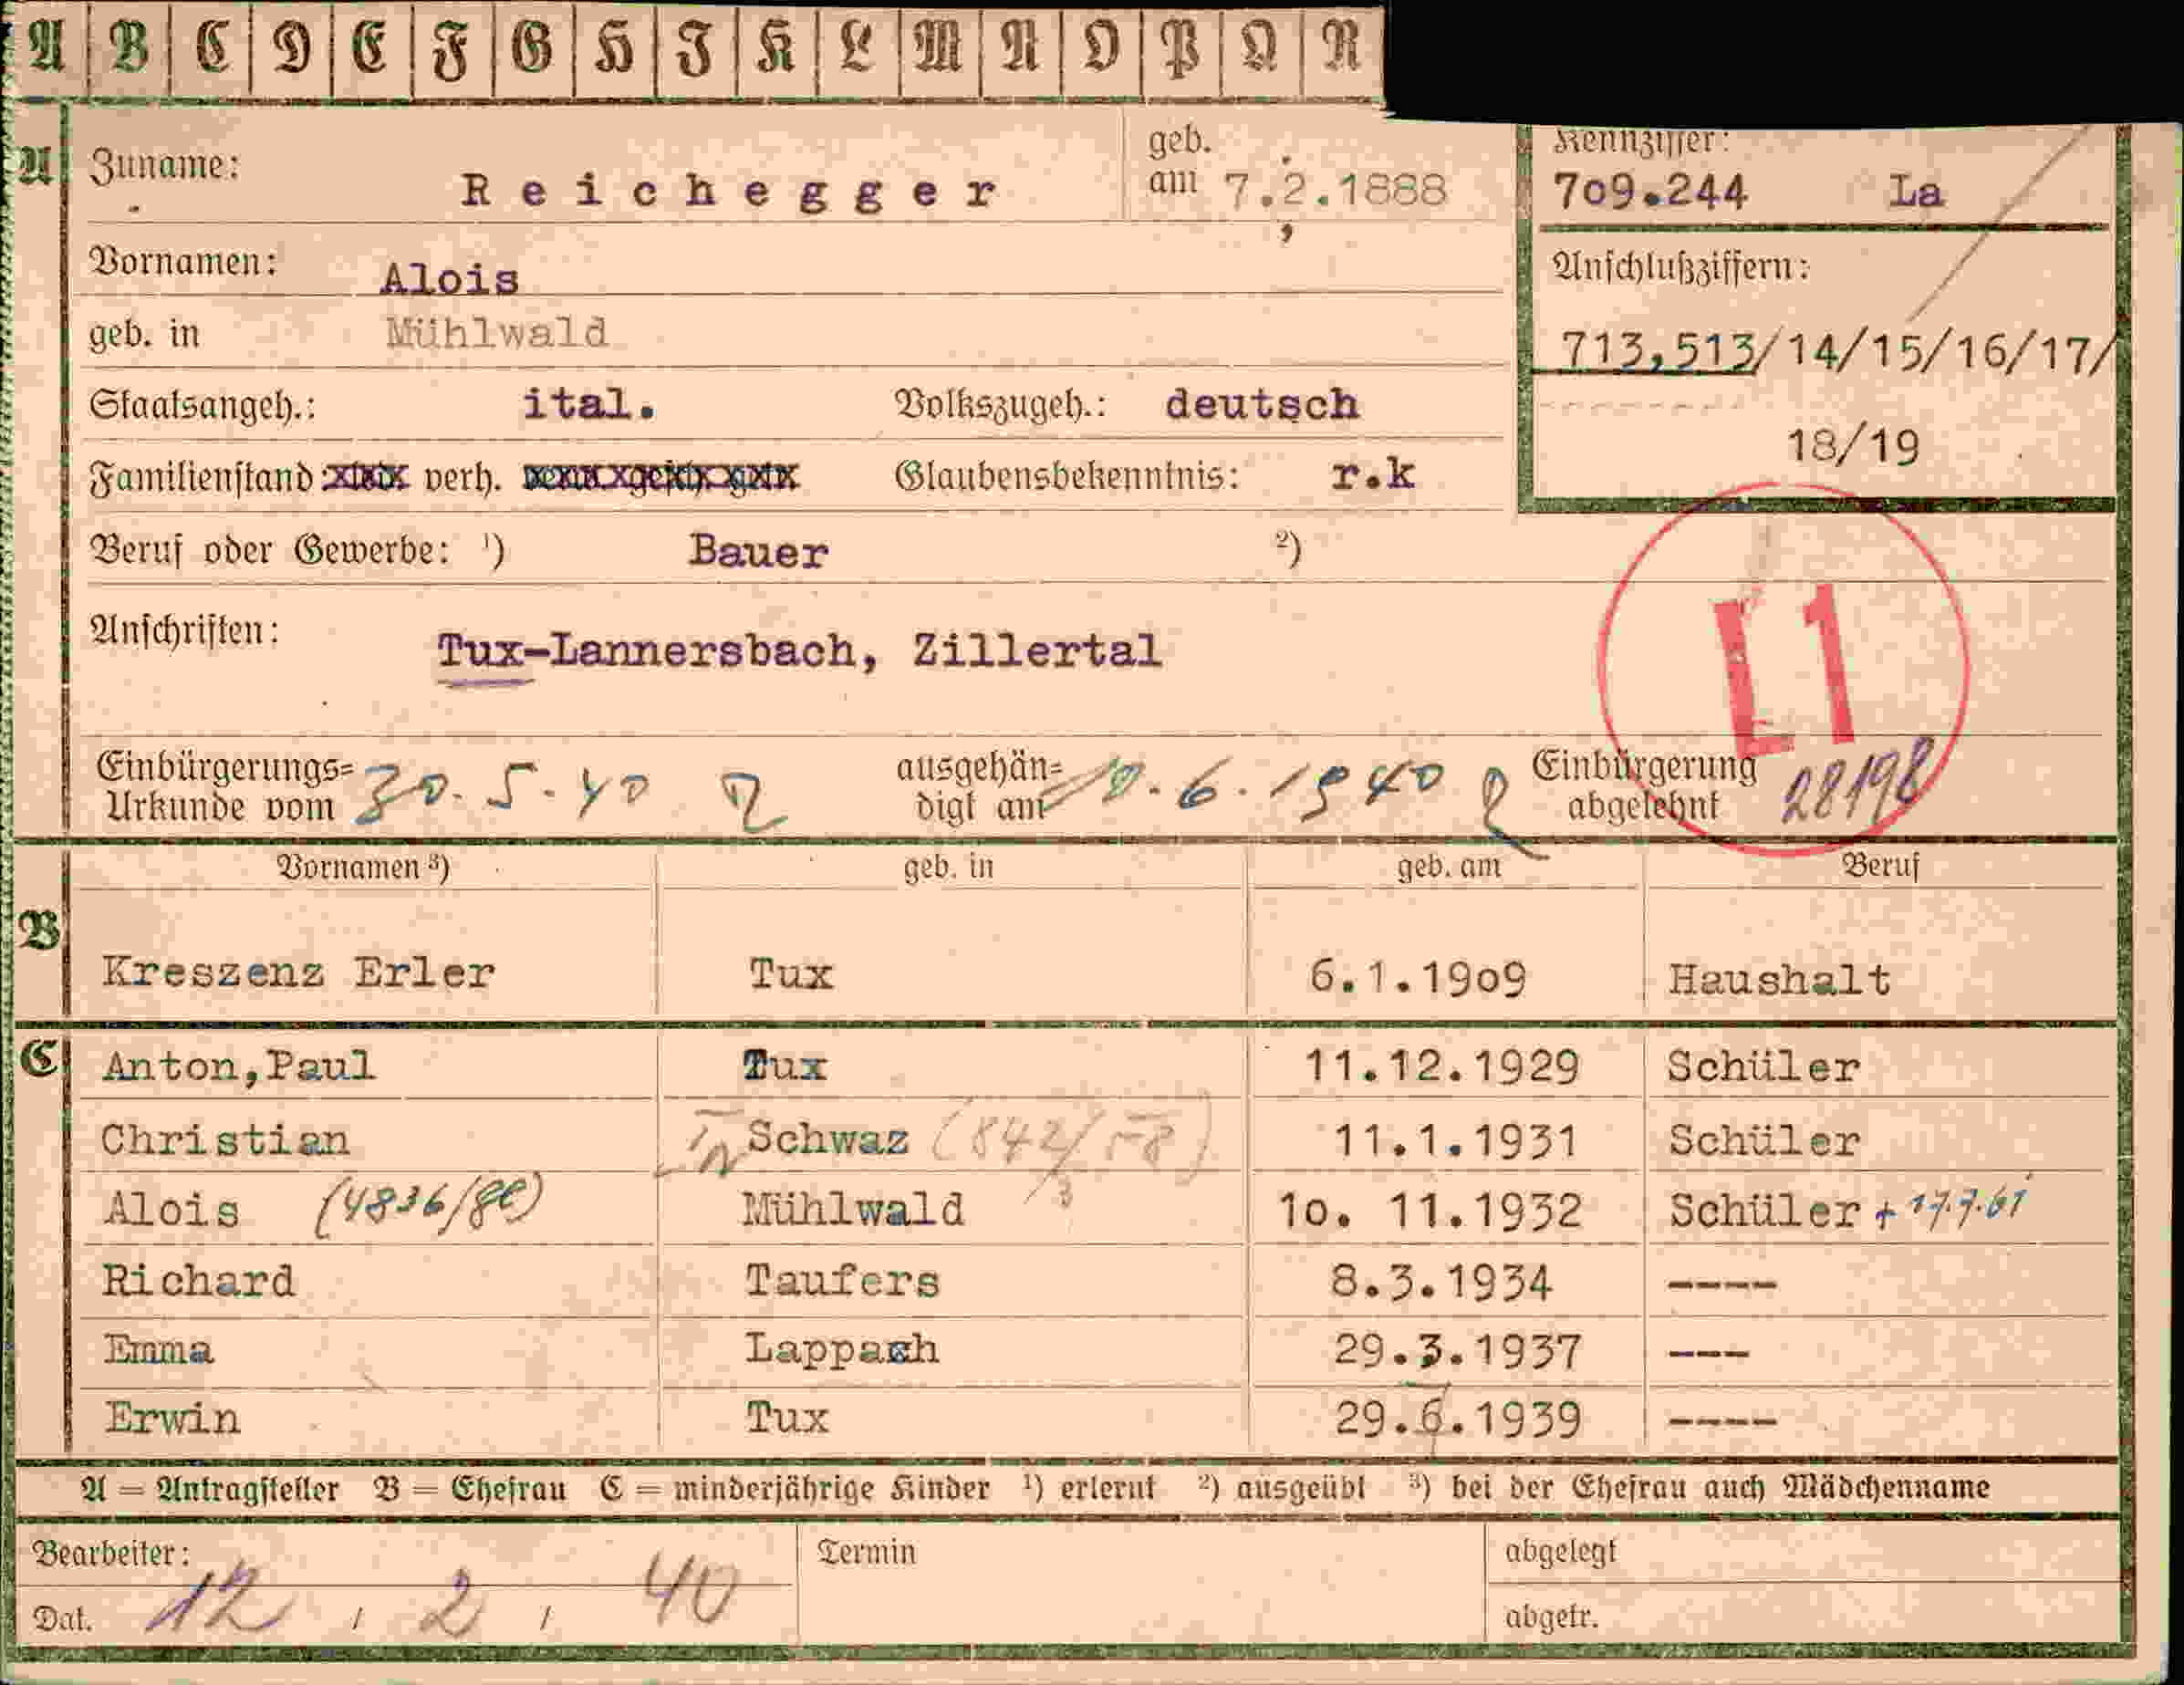 A B C D E F G H J K L M N O P Q R
A
Zuname: Reichegger geb. am 7.2.1888
Kennziffer:
709.244 La
Vornamen: Alois
Anschlußziffern:
geb. in Mühlwald
713,513/14/15/16/17/
18/19
Staatsangeh.: ital. Volkszugeh.: deutsch
Familienstand verh. Glaubensbekenntnis: r.k
Beruf oder Gewerbe: ¹) Bauer ²)
Anschriften: Tux-Lannersbach, Zillertal
L1
Einbürgerungs=
Urkunde vom 30.5.40
ausgehän=
digt am 10.6.1940
Einbürgerung
abgelehnt 28198
Vornamen ³) geb. in geb. am Beruf
B
Kreszenz Erler Tux 6.1.1909 Haushalt
C
Anton,Paul Tux 11.12.1929 Schüler
Christian Schwaz (842/58) 11.1.1931 Schüler
3
Alois (4836/80) Mühlwald 10. 11.1932 Schüler + 17.7.61
Richard Taufers 8.3.1934 ----
Emma Lappach 29.3.1937 ---
Erwin Tux 29.6.1939 ----
A = Antragsteller B = Ehefrau C = minderjährige Kinder ¹) erlernt ²) ausgeübt ³) bei der Ehefrau auch Mädchenname
Bearbeiter: Termin abgelegt
Dat. 12 / 2 / 40 abgetr.